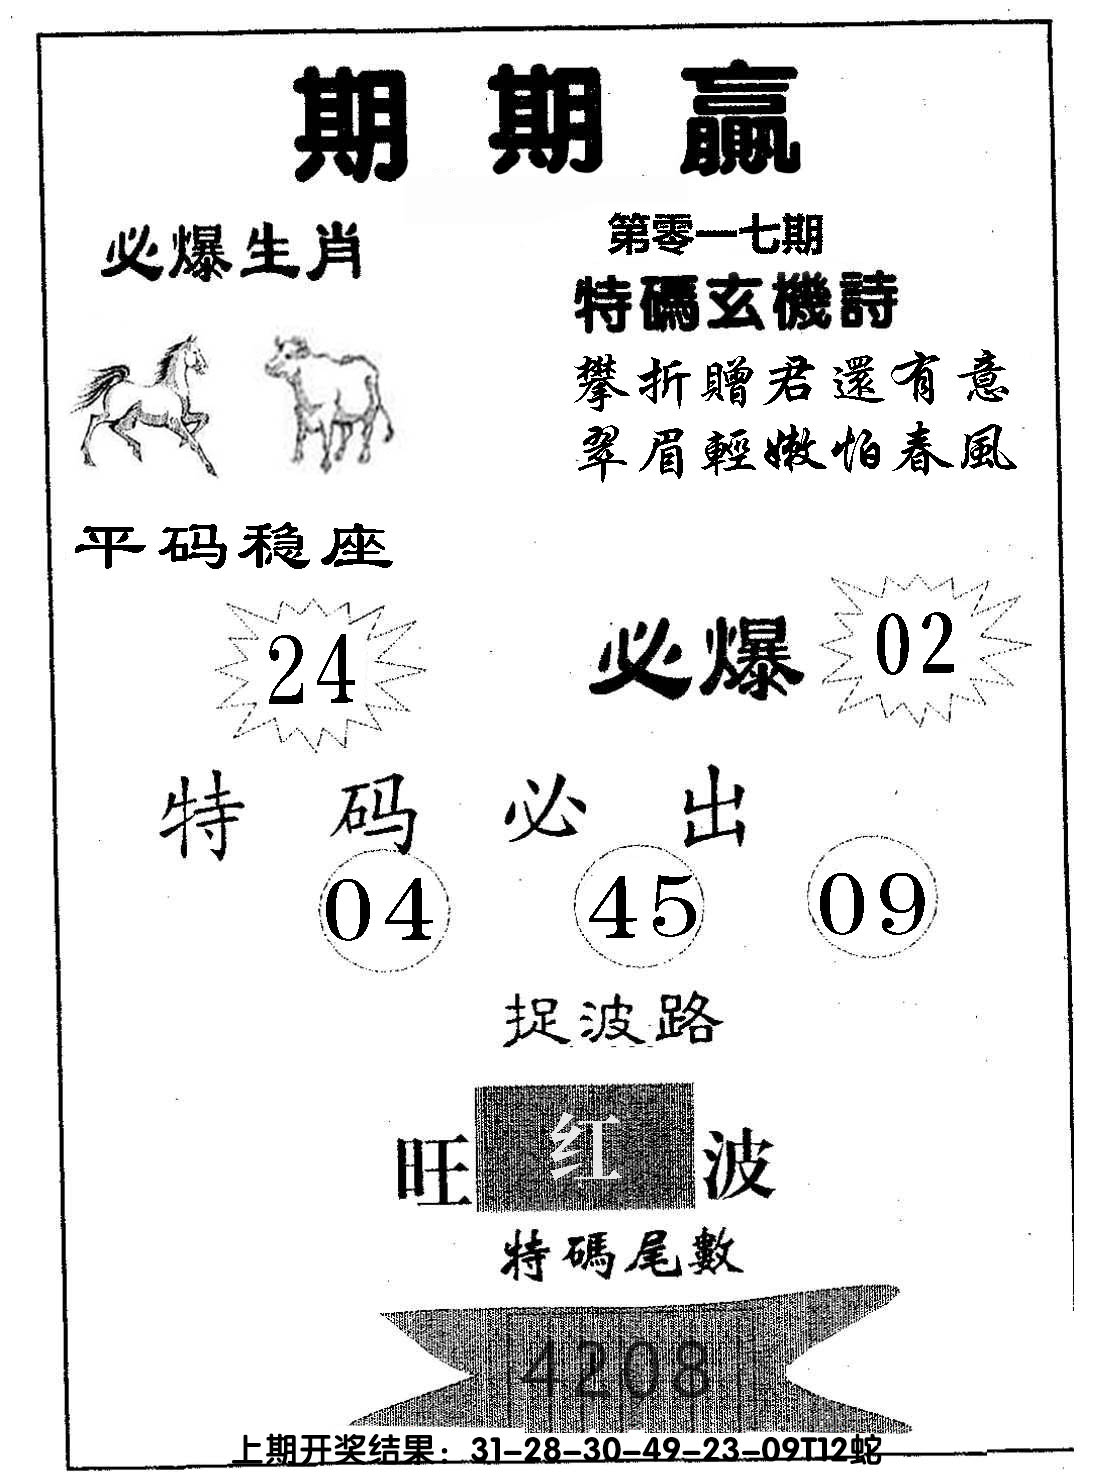 期期赢
必爆生肖
第零一七期
特碼玄機詩
攀折贈君還有意
翠眉輕嫩怕春風
平码稳座
24
必爆
02
特码必出
04 45 09
捉波路
旺红波
特碼尾數
4208
上期开奖结果：31-28-30-49-23-09T12蛇